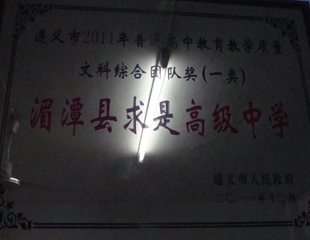 遵义市2011年普通高中教育教学质量
文科综合团队奖(一类)
湄潭县求是高级中学
遵义市人民政府
二〇一一年十二月